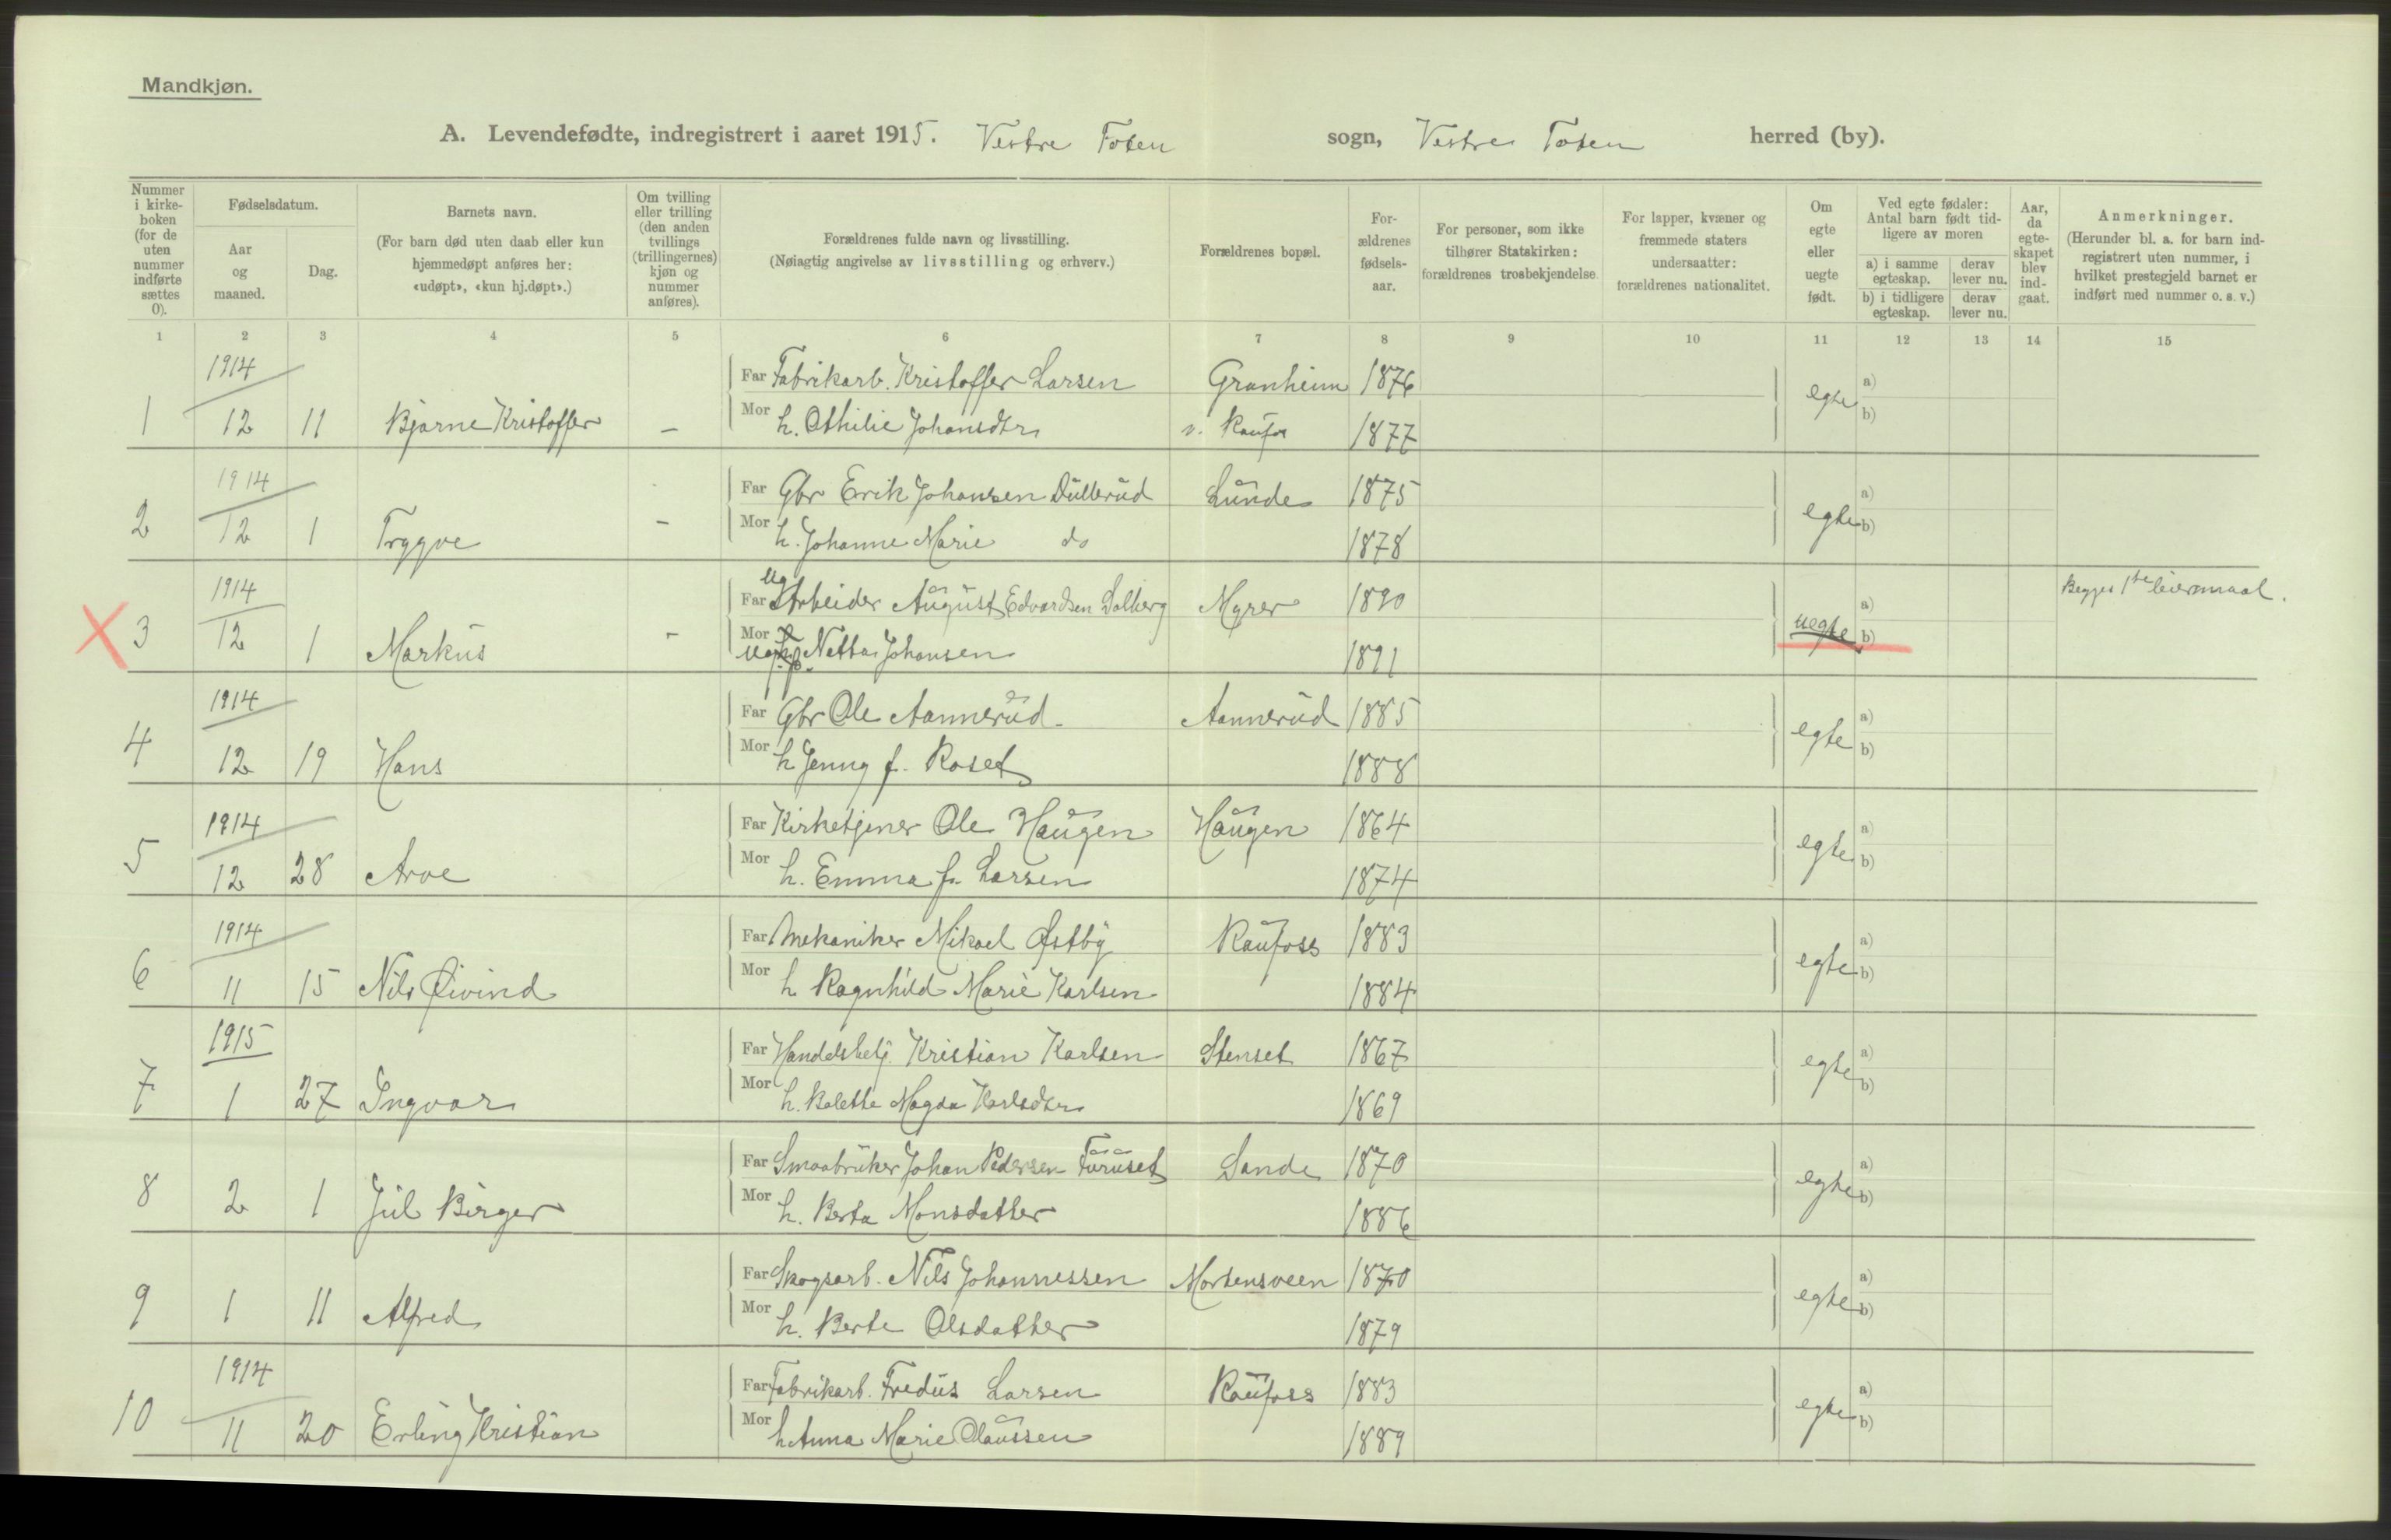 Mandkjøn.
A. Levendefødte, indregistrert i aaret 1915. Vestre Toten sogn, Vestre Toten herred (by).
Nummer i kirke-boken (for de uten nummer indførte sættes 0).
Fødselsdatum.
Aar og maaned.
Dag.
Barnets navn.
(For barn død uten daab eller kun hjemmedøpt anføres her: «udøpt», «kun hj.døpt».)
Om tvilling eller trilling (den anden tvillings (trillingernes) kjøn og nummer anføres).
Forældrenes fulde navn og livsstilling.
(Nøiagtig angivelse av livsstilling og erhverv.)
Forældrenes bopæl.
For-ældrenes fødsels-aar.
For personer, som ikke tilhører Statskirken: forældrenes trosbekjendelse.
For lapper, kvæner og fremmede staters undersaatter: forældrenes nationalitet.
Om egte eller uegte født.
Ved egte fødsler: Antal barn født tid-ligere av moren
a) i samme egteskap. derav lever nu.
b) i tidligere egteskap. derav lever nu.
Aar, da egte-skapet blev ind-gaat.
Anmerkninger.
(Herunder bl. a. for barn ind-registrert uten nummer, i hvilket prestegjeld barnet er indført med nummer o. s. v.)
1 2 3 4 5 6 7 8 9 10 11 12 13 14 15
1914 Far Fabrikarb. Kristoffer Larsen Granheim 1876 a)
1 12 11 Bjarne Kristoffer – Mor h. Othilie Johansdtr v. Raufos 1877 egte b)
1914 Far Gbr Erik Johansen Dullerud Lunde 1875 a)
2 12 1 Trygve - Mor h. Johanne Marie do 1878 egte b)
1914 Far Ug Arbeider August Edvardsen Dalberg Myrer 1890 a) Begges 1ste leiermaal.
3 12 1 Markus - Mor Ug. p. Netta Johansen 1891 uegte b)
1914 Far Gbr Ole Aannerud Aannerud 1885 a)
4 12 19 Hans Mor h Jenny f. Roset 1888 egte b)
1914 Far Kirketjener Ole Haugen Haugen 1864 a)
5 12 28 Arve Mor h. Emma f. Larsen 1874 egte b)
1914 Far Mekaniker Mikael Østby Raufoss 1883 a)
6 11 15 Nils Øivind Mor h Ragnhild Marie Karlsen 1884 egte b)
1915 Far Handelsbetj. Kristian Karlsen Stenset 1867 a)
7 1 27 Ingvar Mor h. Bolette Magda Karlsdtr 1869 egte b)
Far Smaabruker Johan Pedersen Furuset Sande 1870 a)
8 2 1 Jul Birger Mor h. Berta Monsdatter 1886 egte b)
Far Skogsarb. Nils Johannessen Mortensveen 1870 a)
9 1 11 Alfred Mor h. Berte Olsdatter 1879 egte b)
1914 Far Fabrikarb. Fredus Larsen Raufoss 1883 a)
10 11 20 Erling Kristian Mor h Anna Marie Claussen 1889 egte b)